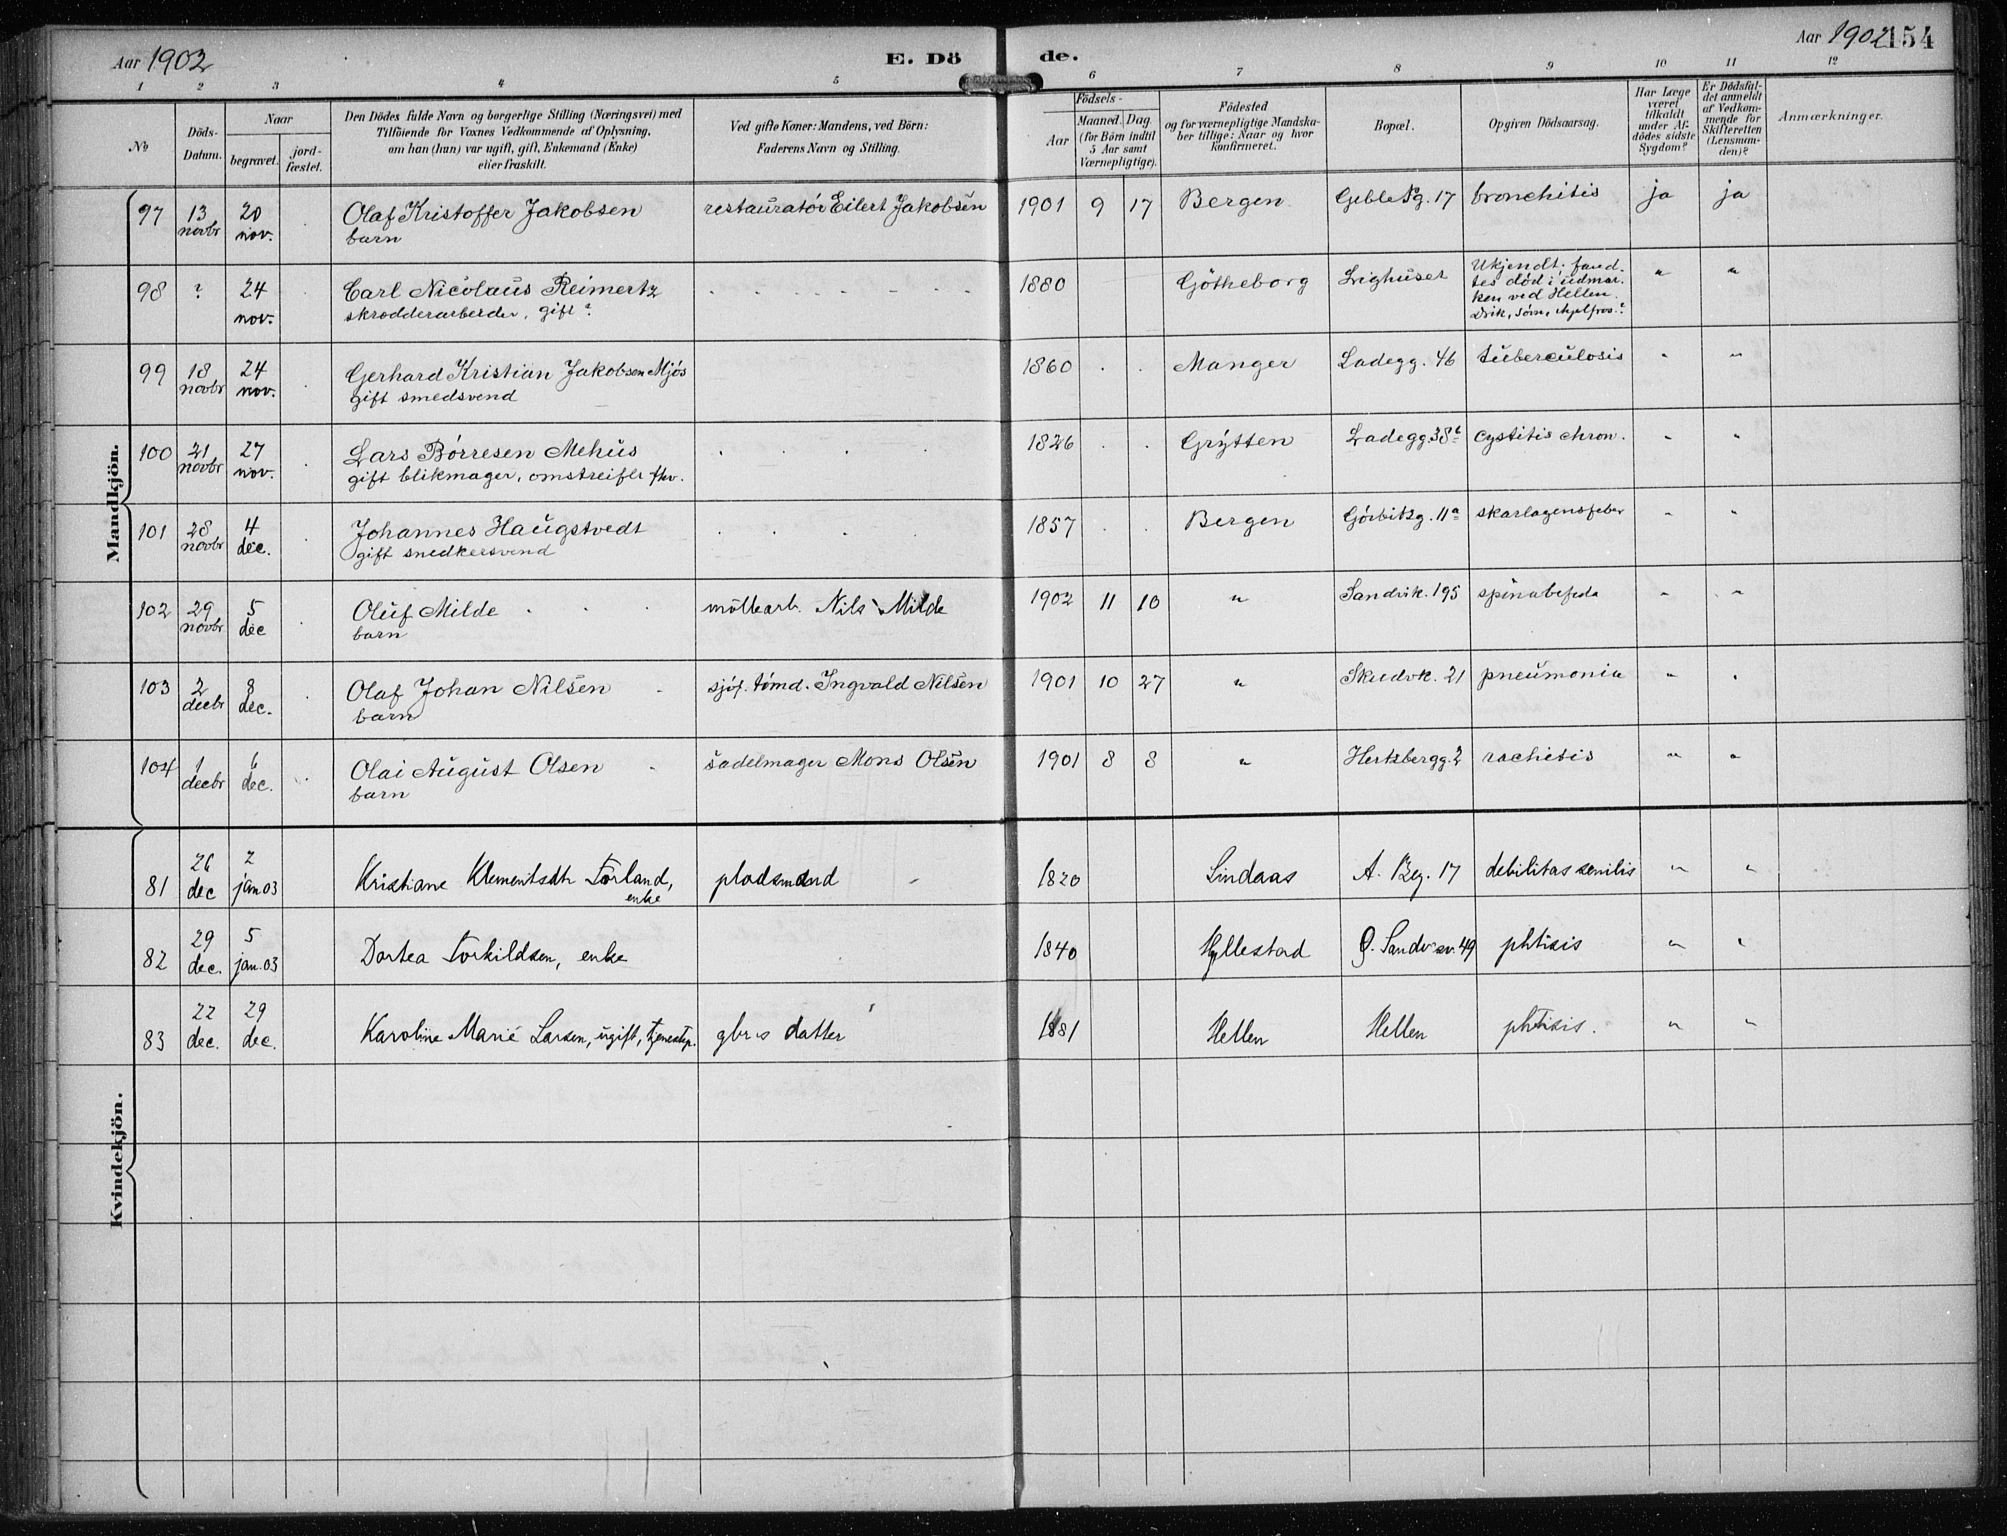 Aar 1902
E. Dö de.
Aar 1902 154
1 2 3 4 5 6 7 8 9 10 11 12
No
Döds-Datum.
Naar
begravet.
jord-fæstet.
Den Dödes fulde Navn og borgerlige Stilling (Næringsvei) med
Tilföiende for Voxnes Vedkommende af Oplysning,
om han (hun) var ugift, gift, Enkemand (Enke)
eller fraskilt.
Ved gifte Koner: Mandens, ved Börn:
Faderens Navn og Stilling.
Födsels-
Aar
Maaned. Dag.
(for Börn indtil
5 Aar samt
Værnepligtige).
Födested
og for værnepligtige Mandska-
ber tillige: Naar og hvor
konfirmeret.
Bopæl.
Opgiven Dödsaarsag.
Har Læge
været
tilkaldt
under Af-
dödes sidste
Sygdom?
Er Dödsfal-
det anmeldt
af Vedkom-
mende for
Skifteretten
(Lensman-
den)?
Anmærkninger.
Mandkjön.
97 13 novbr 20 nov. Olaf Kristoffer Jakobsen restauratör Eilert Jakobsen 1901 9 17 Bergen Geble Pg. 17 bronchitis ja ja
barn
98 ? 24 nov. Carl Nicolaus Reimertz 1880 Götheborg Lighuset Ukjendt; fand-
tes död i udmar-
ken ved Hellen.
Drik, søm, ihjelfros? " "
skrædderarbeider, gift?
99 18 novbr 24 nov. Gerhard Kristian Jakobsen Mjös 1860 Manger Ladegg. 46 tuberculosis " "
gift smedsvend
100 21 novbr 27 nov. Lars Børresen Mehus 1826 Grytten Ladegg. 38 b cystitis chron. " "
gift blikmager, omstreifer fhv.
101 28 novbr 4 dec. Johannes Haugstvedt 1857 Bergen Görbitzg. 11 a skarlagensfeber " "
gift snedkersvend
102 29 novbr 5 dec Oluf Milde möllearb. Nils Milde 1902 11 10 " Sandvik. 195 spinabifida " "
barn
103 2 decbr 8 dec. Olaf Johan Nilsen sjöf. tömd. Ingvald Nilsen 1901 10 27 " Skudvk. 21 pneumonia " "
barn
104 1 decbr 6 dec. Olai August Olsen sadelmager Mons Olsen 1901 8 8 " Hertzbergg. 2 rachitis " "
barn
Kvindekjön.
81 26 dec 2 jan. 03 Kristiane Klementsdtr Torland, enke pladsmand 1820 Lindaas A. Beg. 17 debilitas senilis " "
82 29 dec. 5 jan. 03 Dortea Torkildsen, enke 1840 Hyllestad Ø. Sandv 49 phtisis " "
83 22 dec. 29 dec. Karoline Marie Larsen, ugift, tjenestep. gbr.s datter 1881 Hellen Hellen phtisis. " "